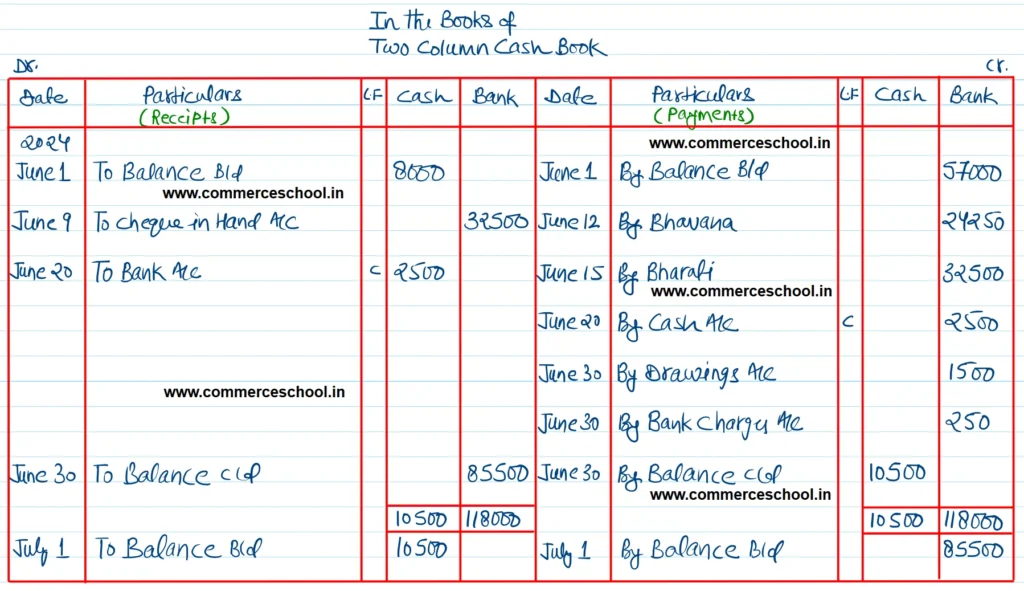 In the Books of
Two Column Cash Book
Dr. Cr.
Date Particulars LF Cash Bank Date Particulars LF Cash Bank
(Receipts) (Payments)
2024 www.commerceschool.in
June 1 To Balance B/d 8000 June 1 By Balance B/d 57000
www.commerceschool.in
June 9 To Cheque in Hand A/c 32500 June 12 By Bhavana 24250
June 20 To Bank A/c C 2500 June 15 By Bharati 32500
www.commerceschool.in
June 20 By Cash A/c C 2500
June 30 By Drawings A/c 1500
www.commerceschool.in
June 30 By Bank Charges A/c 250
June 30 To Balance C/d 85500 June 30 By Balance C/d 10500
www.commerceschool.in
10500 118000 10500 118000
July 1 To Balance B/d 10500 July 1 By Balance B/d 85500